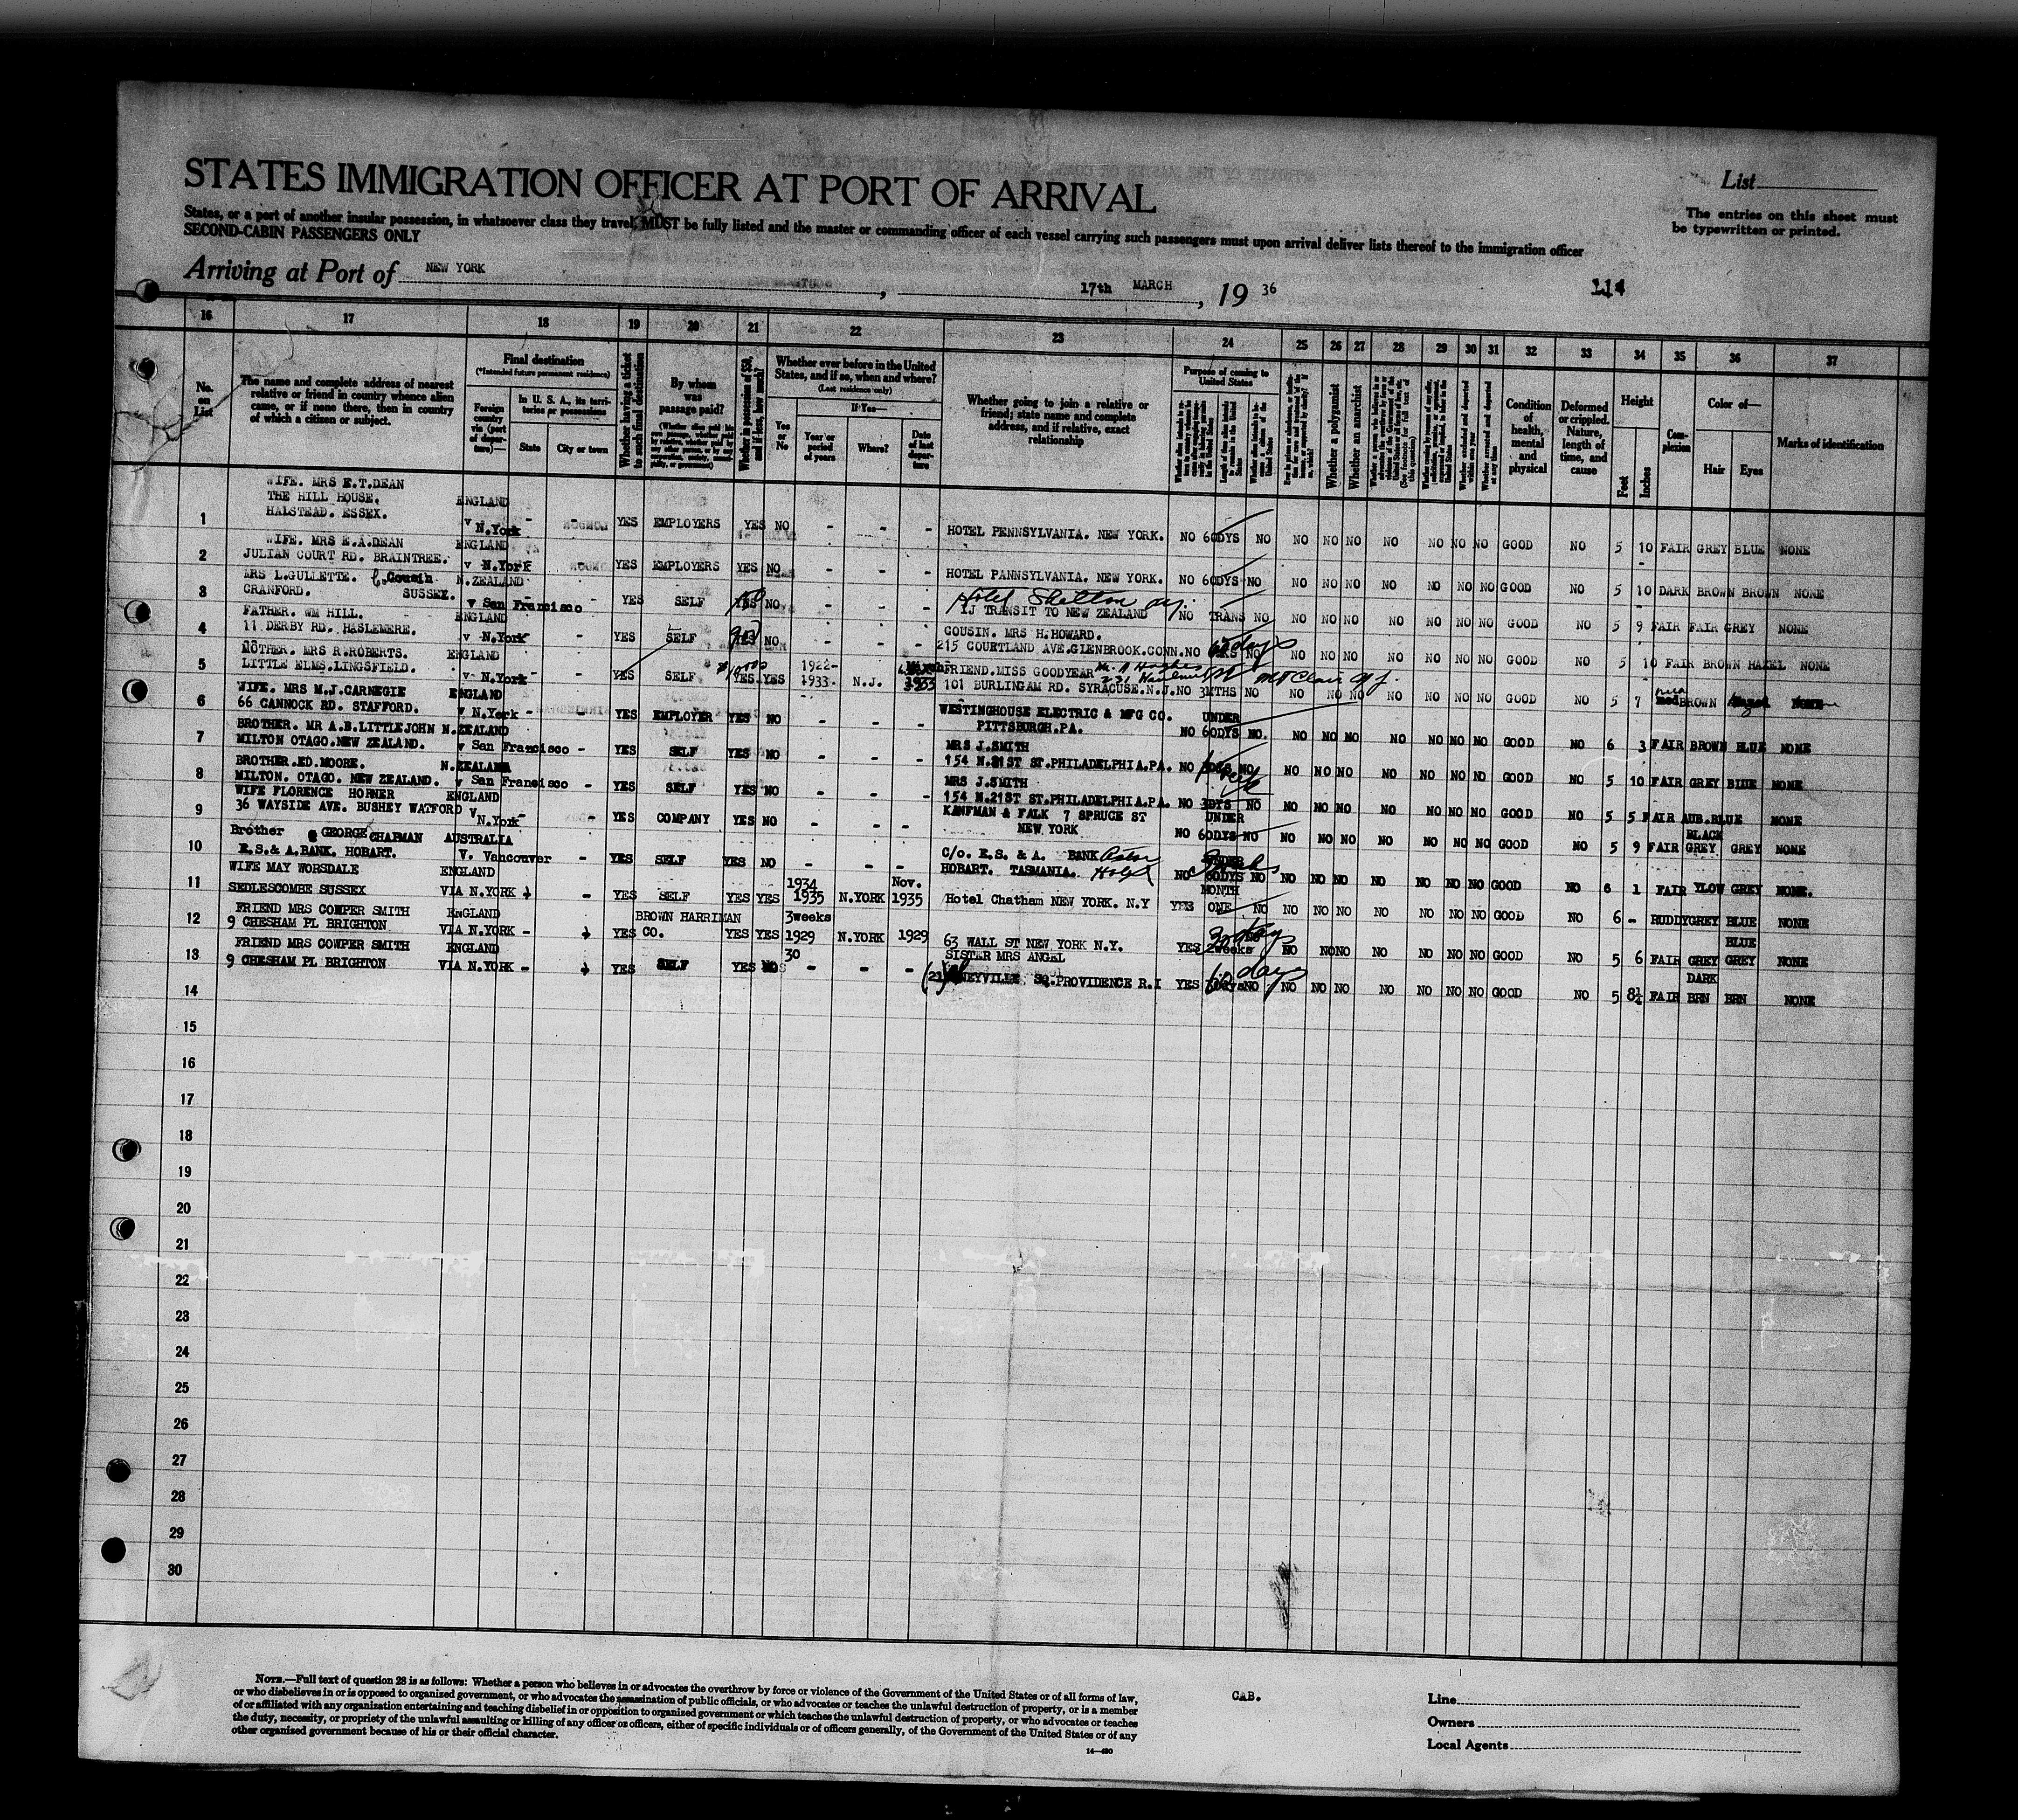 STATES IMMIGRATION OFFICER AT PORT OF ARRIVAL
List
States, or a port of another insular possession, in whatsoever class they travel, MUST be fully listed and the master or commanding officer of each vessel carrying such passengers must upon arrival deliver lists thereof to the immigration officer
SECOND-CABIN PASSENGERS ONLY
The entries on this sheet must
be typewritten or printed.
Arriving at Port of NEW YORK, 17th MARCH, 19 36
114
16 17 18 19 20 21 22 23 24 25 26 27 28 29 30 31 32 33 34 35 36 37
No. on List
The name and complete address of nearest relative or friend in country whence alien came, or if none there, then in country of which a citizen or subject.
Final destination
(*Intended future permanent residence)
Foreign country via (port of departure)—
In U. S. A., its territories or possessions
State
City or town
Whether having a ticket to such final destination
By whom was passage paid?
Whether in possession of $50, and if less, how much?
Whether ever before in the United States, and if so, when and where?
(Last residence only)
Yes or No
If Yes—
Year or period of years
Where?
Date of last departure
Whether going to join a relative or friend; state name and complete address, and if relative, exact relationship
Purpose of coming to United States
Whether a polygamist
Whether an anarchist
(See footnote for full text of this question)
Condition of health, mental and physical
Deformed or crippled. Nature, length of time, and cause
Height
Feet
Inches
Complexion
Color of—
Hair
Eyes
Marks of identification
WIFE. MRS E.T.DEAN
THE HILL HOUSE. ENGLAND
1 HALSTEAD. ESSEX. v N.York - - YES EMPLOYERS YES NO - - - HOTEL PENNSYLVANIA. NEW YORK. NO 60DYS NO NO NO NO NO NO NO NO GOOD NO 5 10 FAIR GREY BLUE NONE
WIFE. MRS E.A.DEAN ENGLAND
2 JULIAN COURT RD. BRAINTREE. v N.York YES EMPLOYERS YES NO - - - HOTEL PANNSYLVANIA. NEW YORK. NO 60DYS NO NO NO NO NO NO NO NO GOOD NO 5 10 DARK BROWN BROWN NONE
MRS L.GULLETTE. Cousin N.ZEALAND Hotel Shelton
3 CRANFORD. SUSSEX. v San Francisco YES SELF YES NO - - - TRANSIT TO NEW ZEALAND NO TRANS NO NO NO NO NO NO NO NO GOOD NO 5 9 FAIR FAIR GREY NONE
FATHER. WM HILL. ENGLAND COUSIN. MRS H.HOWARD.
4 11 DERBY RD. HASLEMERE. v N.York - YES SELF NO - - - 215 COURTLAND AVE.GLENBROOK.CONN. NO 60 days NO NO NO NO NO NO NO GOOD NO 5 10 FAIR BROWN HAZEL NONE
MOTHER. MRS R.ROBERTS. ENGLAND 1922- FRIEND.MISS GOODYEAR
5 LITTLE ELMS.LINGSFIELD. v N.York - YES SELF YES YES 1933- N.J. 1933 101 BURLINGAM RD. SYRACUSE.N.J. NO 3MTHS NO NO NO NO NO NO NO NO GOOD NO 5 7 BROWN
WIFE. MRS M.J.CARNEGIE ENGLAND WESTINGHOUSE ELECTRIC & MFG CO. UNDER
6 66 CANNOCK RD. STAFFORD. v N.York - - YES EMPLOYER YES NO - - - PITTSBURGH.PA. NO 60DYS NO. NO NO NO NO NO NO NO GOOD NO 6 3 FAIR BROWN BLUE NONE
BROTHER. MR A.B.LITTLEJOHN N.ZEALAND MRS J.SMITH
7 MILTON OTAGO.NEW ZEALAND. v San Francisco - YES SELF YES NO - - - 154 N.21ST ST.PHILADELPHIA.PA. NO NO NO NO NO NO NO NO NO GOOD NO 5 10 FAIR GREY BLUE NONE
BROTHER.ED.MOORE. N.ZEALAND MRS J.SMITH
8 MILTON. OTAGO. NEW ZEALAND. v San Francisco - YES SELF YES NO - - - 154 N.21ST ST.PHILADELPHIA.PA. NO 3DYS NO NO NO NO NO NO NO NO GOOD NO 5 5 FAIR AUB.BLUE NONE
WIFE FLORENCE HORNER ENGLAND KAUFMAN & FALK 7 SPRUCE ST UNDER BLACK
9 36 WAYSIDE AVE. BUSHEY WATFORD V N.York - YES COMPANY YES NO - - - NEW YORK NO 60DYS NO NO NO NO NO NO NO NO GOOD NO 5 9 FAIR GREY GREY NONE
Brother GEORGE CHAPMAN AUSTRALIA C/o. E.S. & A. BANK Astor UNDER
10 E.S.& A.BANK. HOBART. V. Vancouver - YES SELF YES NO - - - HOBART. TASMANIA. Hotel NO 60DYS NO NO NO NO NO NO NO NO GOOD NO 6 1 FAIR YLOW GREY NONE.
WIFE MAY WORSDALE ENGLAND 1934 Nov. MONTH
11 SEDLESCOMBE SUSSEX VIA N.YORK - YES SELF YES YES 1935 N.YORK 1935 Hotel Chatham NEW YORK. N.Y YES ONE NO NO NO NO NO NO NO NO GOOD NO 6 - RUDDY GREY BLUE NONE
FRIEND MRS COWPER SMITH ENGLAND BROWN HARRIMAN 3weeks BLUE
12 9 CHESHAM PL BRIGHTON VIA N.YORK - YES CO. YES YES 1929 N.YORK 1929 63 WALL ST NEW YORK N.Y. YES 2weeks NO NO NO NO NO NO NO GOOD NO 5 6 FAIR GREY GREY NONE
FRIEND MRS COWPER SMITH ENGLAND 30 SISTER MRS ANGEL DARK
13 9 CHESHAM PL BRIGHTON VIA N.YORK - YES SELF YES - - - SQ.PROVIDENCE R.I YES 60 days NO NO NO NO NO NO NO NO GOOD NO 5 8½ FAIR BRN BRN NONE
14
15
16
17
18
19
20
21
22
23
24
25
26
27
28
29
30
NOTE.—Full text of question 28 is as follows: Whether a person who believes in or advocates the overthrow by force or violence of the Government of the United States or of all forms of law,
or who disbelieves in or is opposed to organized government, or who advocates the assassination of public officials, or who advocates or teaches the unlawful destruction of property, or is a member
of or affiliated with any organization entertaining and teaching disbelief in or opposition to organized government or which teaches the unlawful destruction of property, or who advocates or teaches
the duty, necessity, or propriety of the unlawful assaulting or killing of any officer or officers, either of specific individuals or of officers generally, of the Government of the United States or of any
other organised government because of his or their official character.
14—430
CAB.
Line
Owners
Local Agents